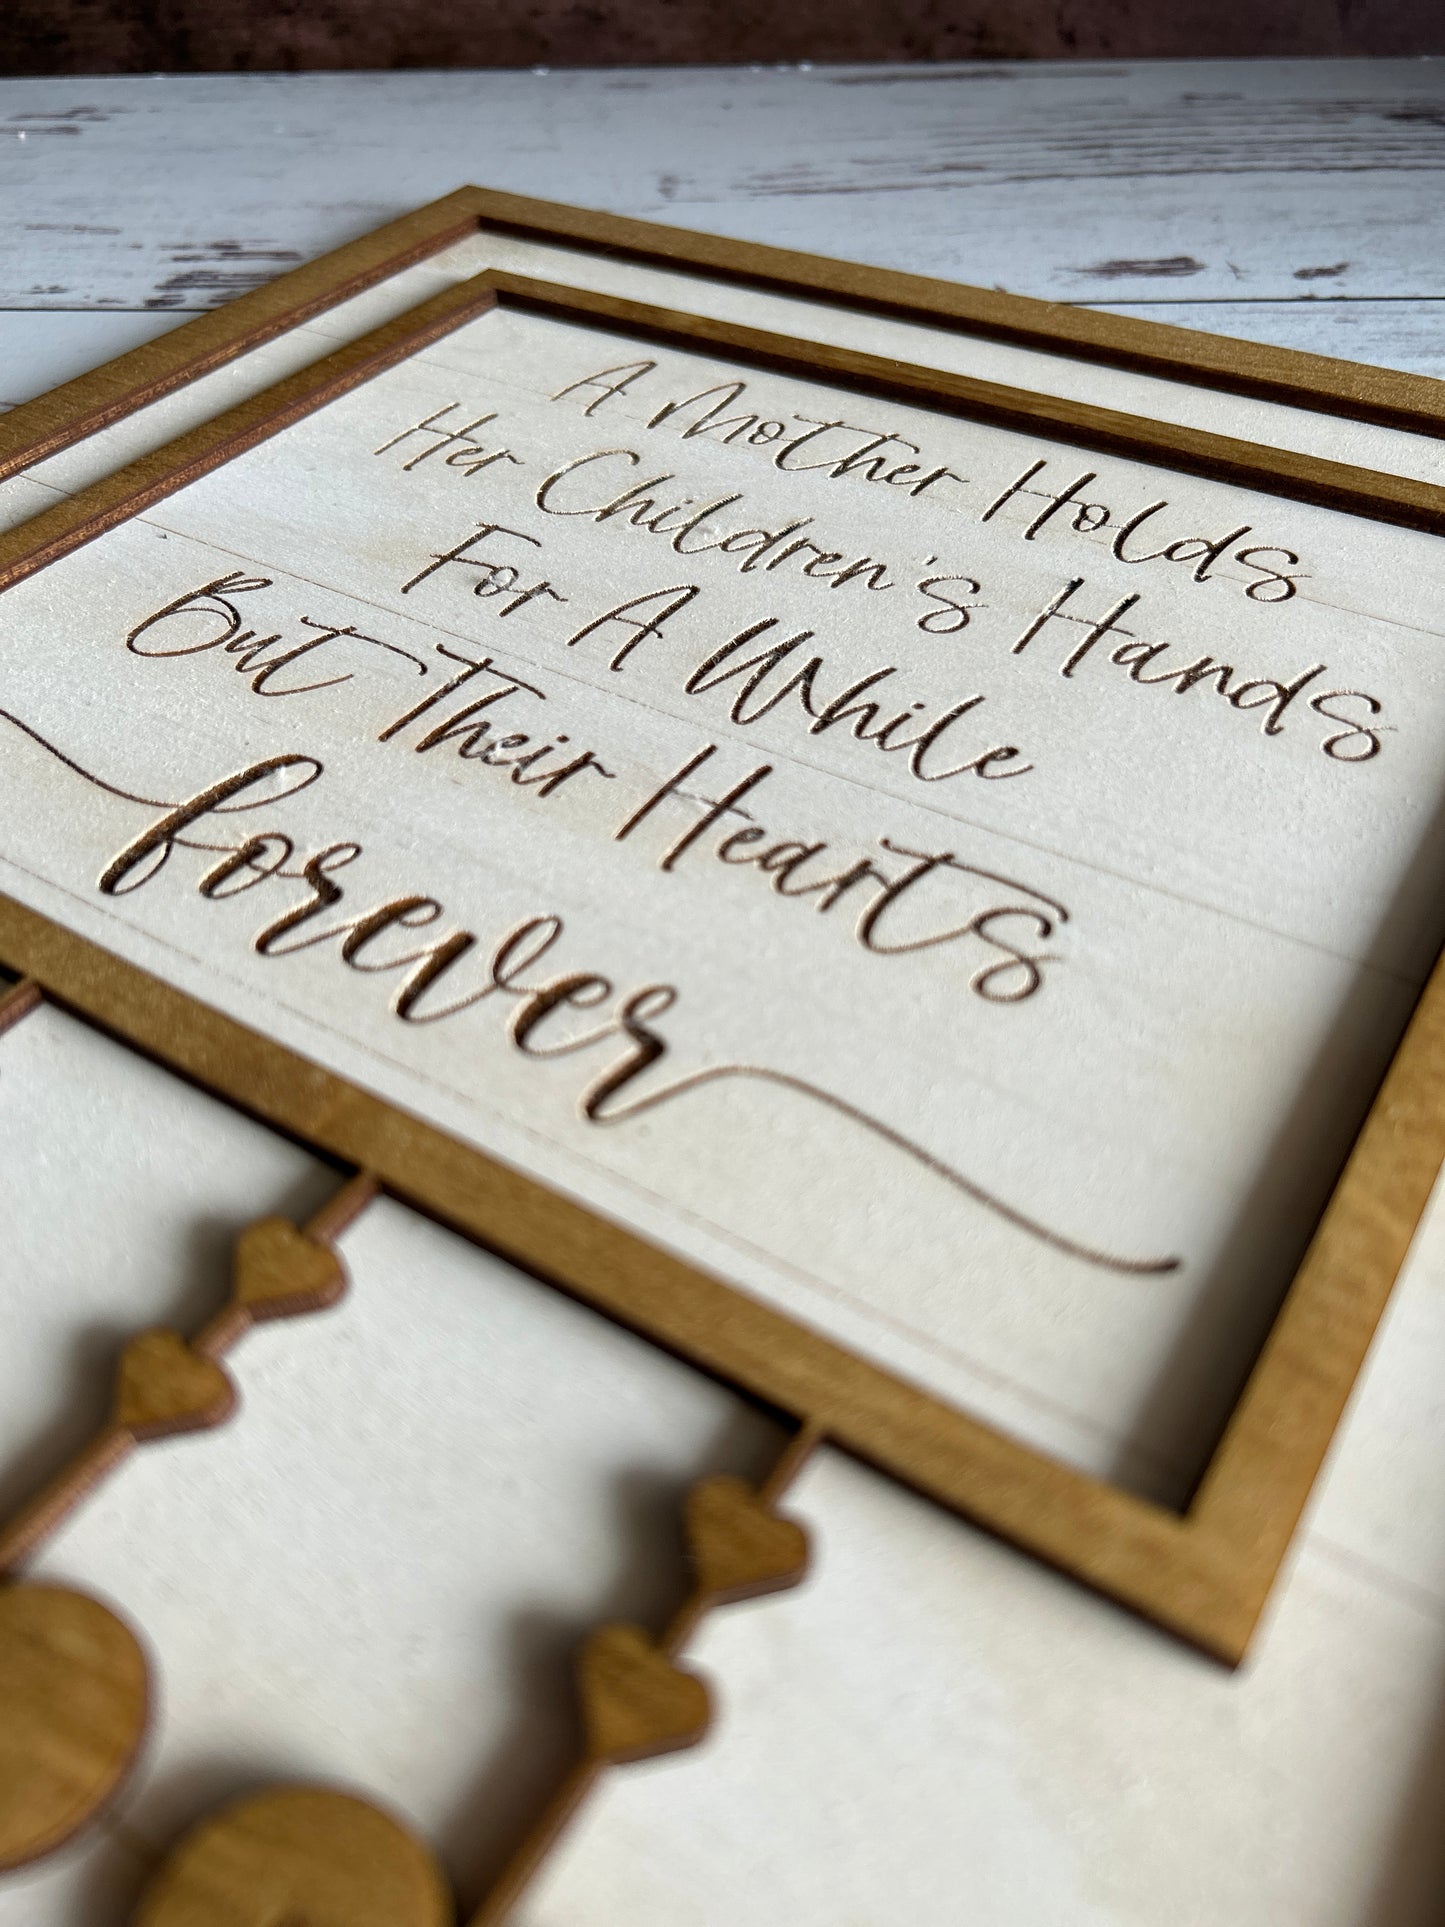 A Mother Holds
Her Children's Hands
For A While
But Their Hearts
forever